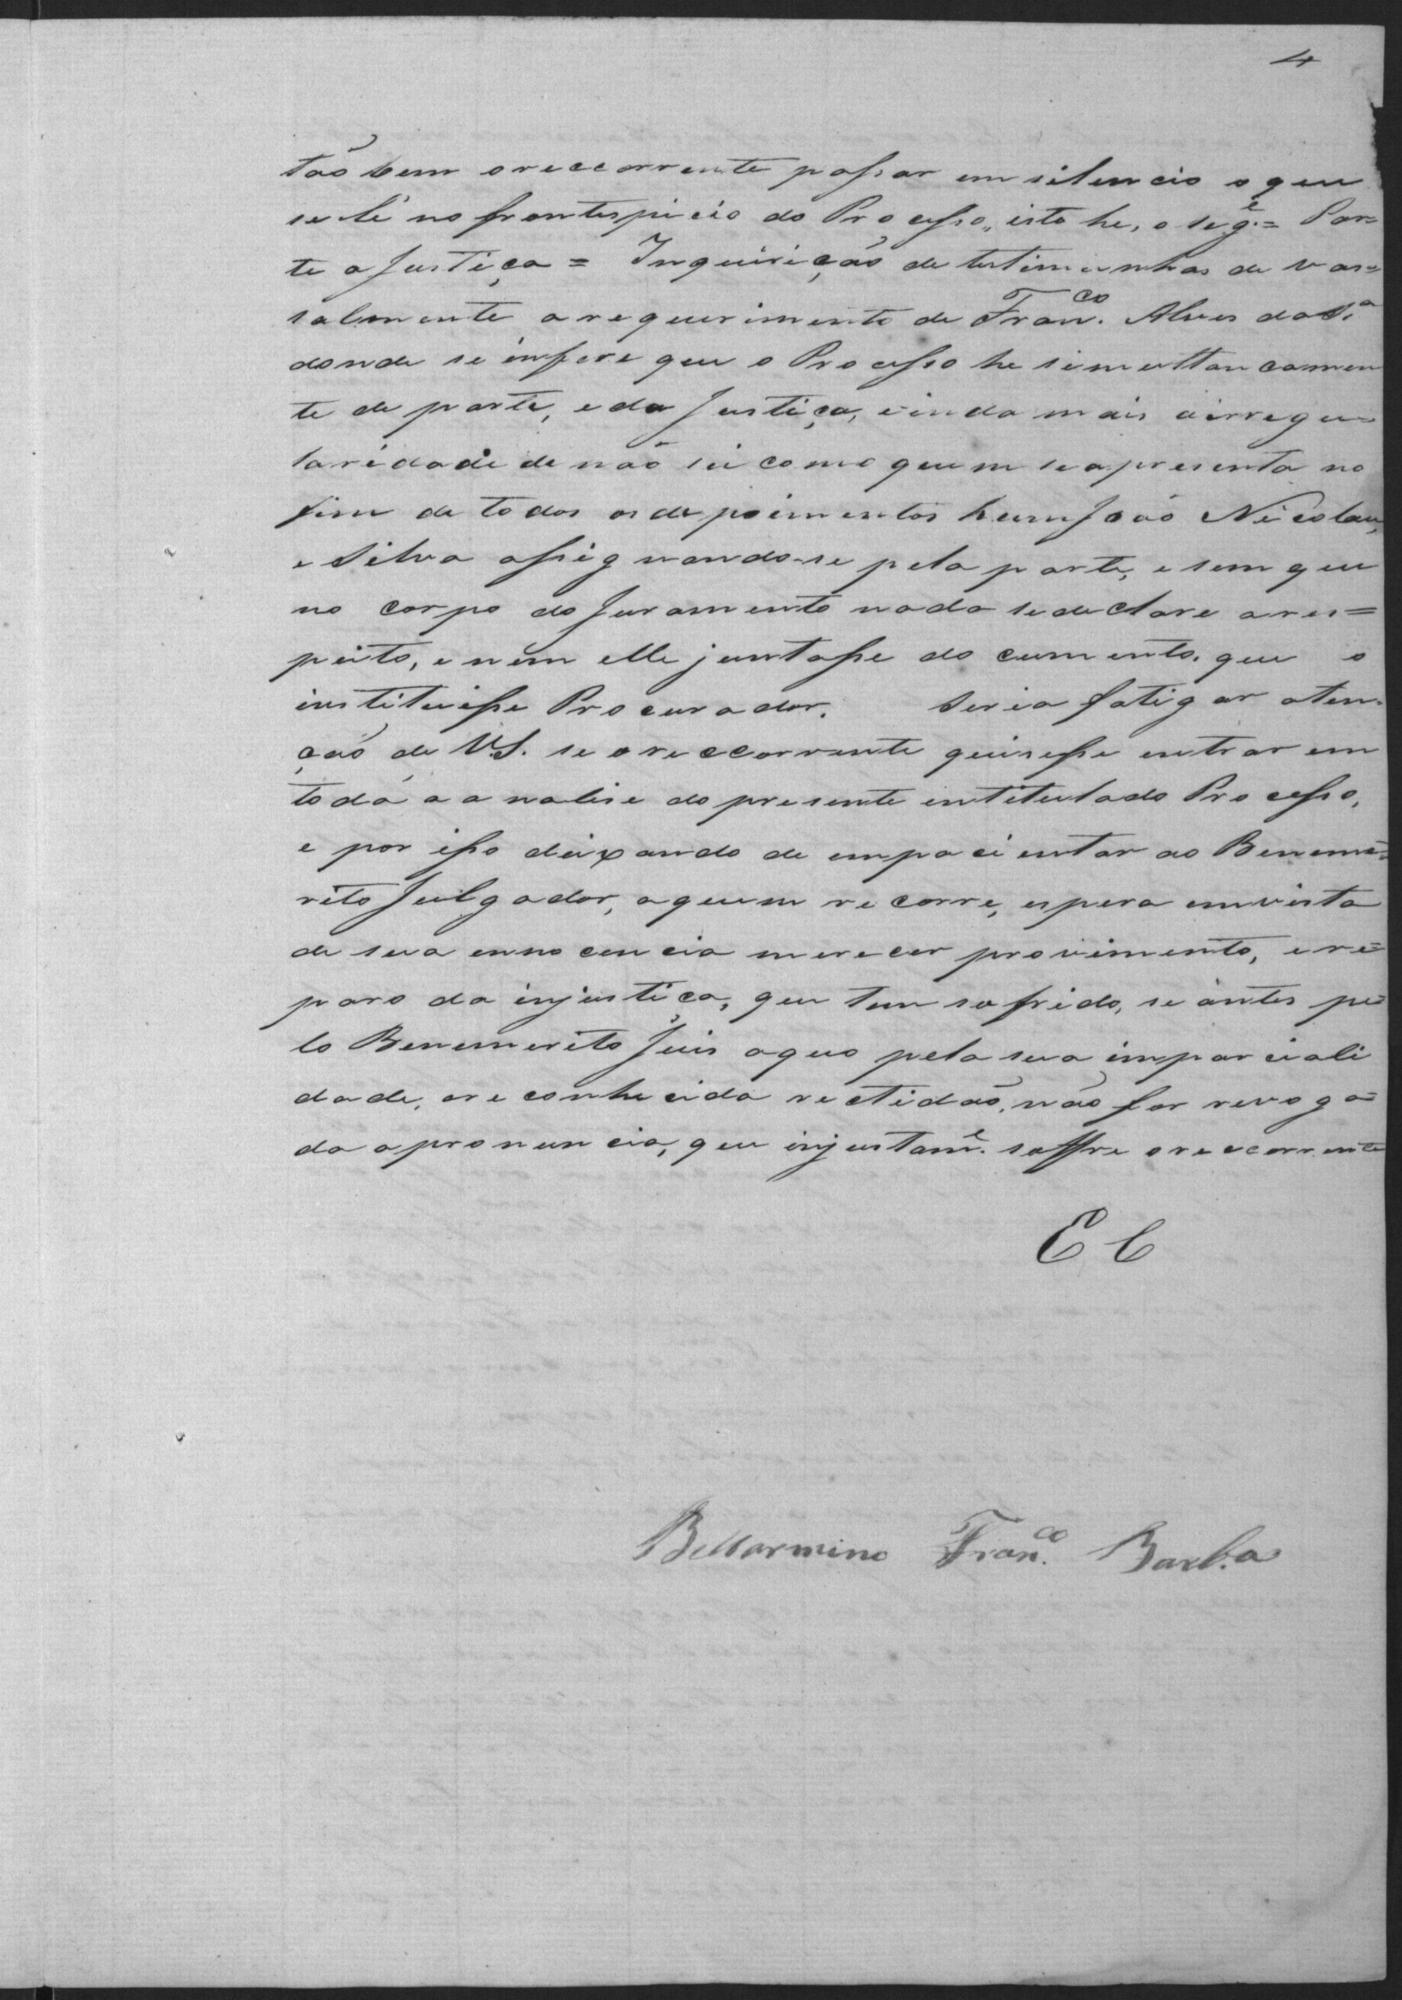 4
tão bem o reccorrente passar em silencio o que
se lê no frontespicio do Processo, isto he, o seg.e = Par=
te a Justiça = Inquirição de testimunhas devas=
salmente a requerimento de Fran.co Alves da S.a
donde se infere que o Processo he simultaneamen
te de parte, e da Justiça, e inda mais a irregu=
laridade de não sei como quem se apresenta no
fim de todos os depoimentos hum João Nicolau,
e Silva assignando-se pela parte, e sem que
no corpo do Juramento nada se declare a res=
peito, e nem elle juntasse documento, que o
instituisse Procurador. Seria fatigar aten=
ção de V.S. se o reccorrente quisesse entrar em
toda a analise do presente intitulado Processo,
e por isso deixando de empacientar ao Beneme=
rito Julgador, a quem recorre, espera em vista
de sua ennocencia merecer provimento, e re=
paro da injustiça, que tem sofrido, se antes pe=
lo Benemerito Juis aquo pela sua imparciali
dade, e reconhecida rectidão, não for revoga=
da a pronuncia, que injustam.e soffre o reccorrente
E C
Bellarmino Fran.co Barb.a